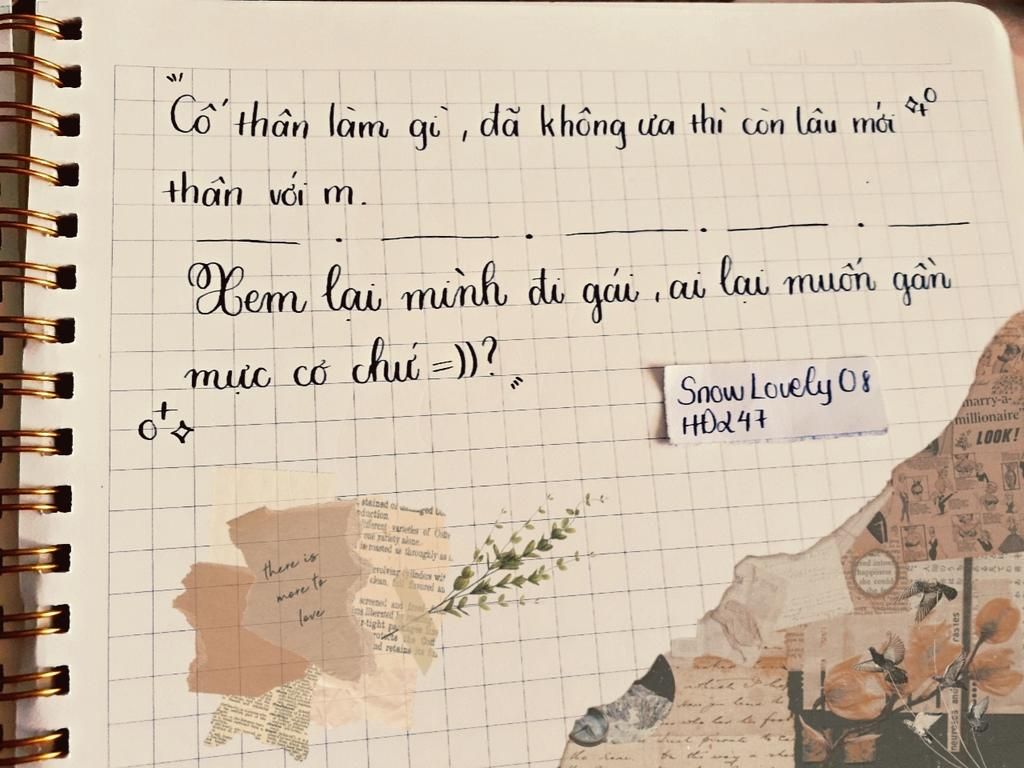 "Cố thân làm gì, đã không ưa thì còn lâu mới
thân với m.
Xem lại mình đi gái, ai lại muốn gần
mực cơ chứ =))?"
Snow Lovely 08
HĐ247
there is
more to
love
marry-a-
millionaire"
LOOK!